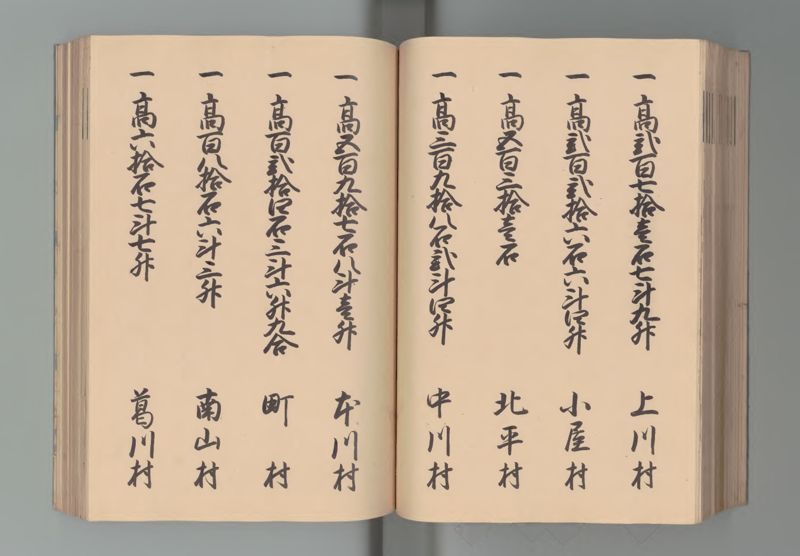 一 高弐百七拾壱石七斗九升 上川村
一 高弐百弐拾六石六斗四升 小屋村
一 高五百三拾壱石 北平村
一 高三百九拾八石弐斗四升 中川村
一 高五百九拾七石八斗壱升 本川村
一 高百弐拾四石三斗六升九合 町村
一 高百八拾石六斗三升 南山村
一 高六拾石七斗七升 葛川村